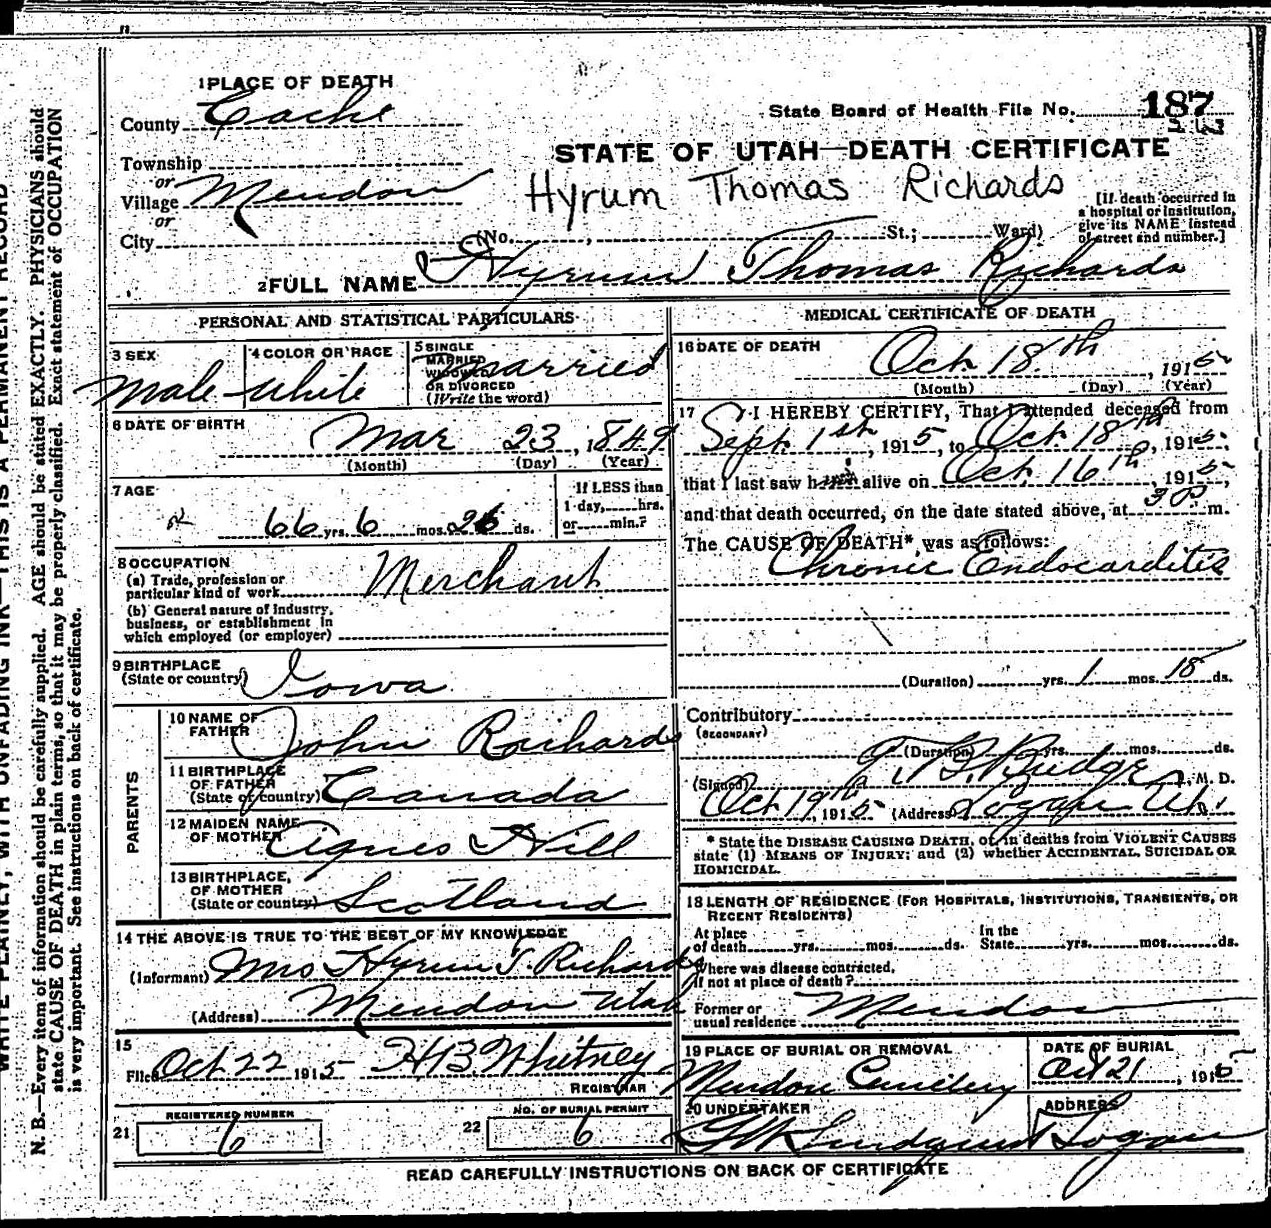 1 PLACE OF DEATH
County Cache
State Board of Health File No. 187
Township
or
Village Mendon
or
City
STATE OF UTAH—DEATH CERTIFICATE
Hyrum Thomas Richards
(No. , St.; Ward)
[If death occurred in
a hospital or institution,
give its NAME instead
of street and number.]
2 FULL NAME Hyrum Thomas Richards
PERSONAL AND STATISTICAL PARTICULARS
3 SEX
Male
4 COLOR OR RACE
White
5 SINGLE
MARRIED
WIDOWED
OR DIVORCED
(Write the word)
Married
6 DATE OF BIRTH
Mar 23, 1849
(Month) (Day) (Year)
7 AGE
66 yrs. 6 mos. ds.
If LESS than
1 day, hrs.
or min.?
8 OCCUPATION
(a) Trade, profession or
particular kind of work Merchant
(b) General nature of industry,
business, or establishment in
which employed (or employer)
9 BIRTHPLACE
(State or country) Iowa
PARENTS
10 NAME OF
FATHER John Richards
11 BIRTHPLACE
OF FATHER
(State or country) Canada
12 MAIDEN NAME
OF MOTHER Agnes Hill
13 BIRTHPLACE,
OF MOTHER
(State or country) Scotland
14 THE ABOVE IS TRUE TO THE BEST OF MY KNOWLEDGE
(Informant) Mrs Hyrum T. Richards
(Address) Mendon Utah
15
Filed Oct 22 1915 H B Whitney
REGISTRAR
21 REGISTERED NUMBER
6
22 NO. OF BURIAL PERMIT
6
MEDICAL CERTIFICATE OF DEATH
16 DATE OF DEATH
Oct. 18th, 1915
(Month) (Day) (Year)
17 I HEREBY CERTIFY, That I attended deceased from
Sept. 1st, 1915, to Oct. 18th, 1915.
that I last saw h alive on Oct. 16th, 1915,
and that death occurred, on the date stated above, at m.
The CAUSE OF DEATH*, was as follows:
Chronic Endocarditis
(Duration) yrs. 1 mos. 18 ds.
Contributory
(SECONDARY)
(Duration) yrs. mos. ds.
(Signed) Budge, M. D.
Oct 19th, 1915 (Address) Logan Ut.
* State the DISEASE CAUSING DEATH, or, in deaths from VIOLENT CAUSES
state (1) MEANS OF INJURY; and (2) whether ACCIDENTAL, SUICIDAL OR
HOMICIDAL.
18 LENGTH OF RESIDENCE (FOR HOSPITALS, INSTITUTIONS, TRANSIENTS, OR
RECENT RESIDENTS)
At place
of death yrs. mos. ds.
In the
State yrs. mos. ds.
Where was disease contracted,
if not at place of death?
Former or
usual residence Mendon
19 PLACE OF BURIAL OR REMOVAL
Mendon Cemetery
DATE OF BURIAL
Oct 21, 1915
20 UNDERTAKER
ADDRESS
Logan
READ CAREFULLY INSTRUCTIONS ON BACK OF CERTIFICATE
N. B.—Every item of information should be carefully supplied. AGE should be stated EXACTLY. PHYSICIANS should
state CAUSE OF DEATH in plain terms, so that it may be properly classified. Exact statement of OCCUPATION
is very important. See instructions on back of certificate.
WRITE PLAINLY, WITH UNFADING INK—THIS IS A PERMANENT RECORD